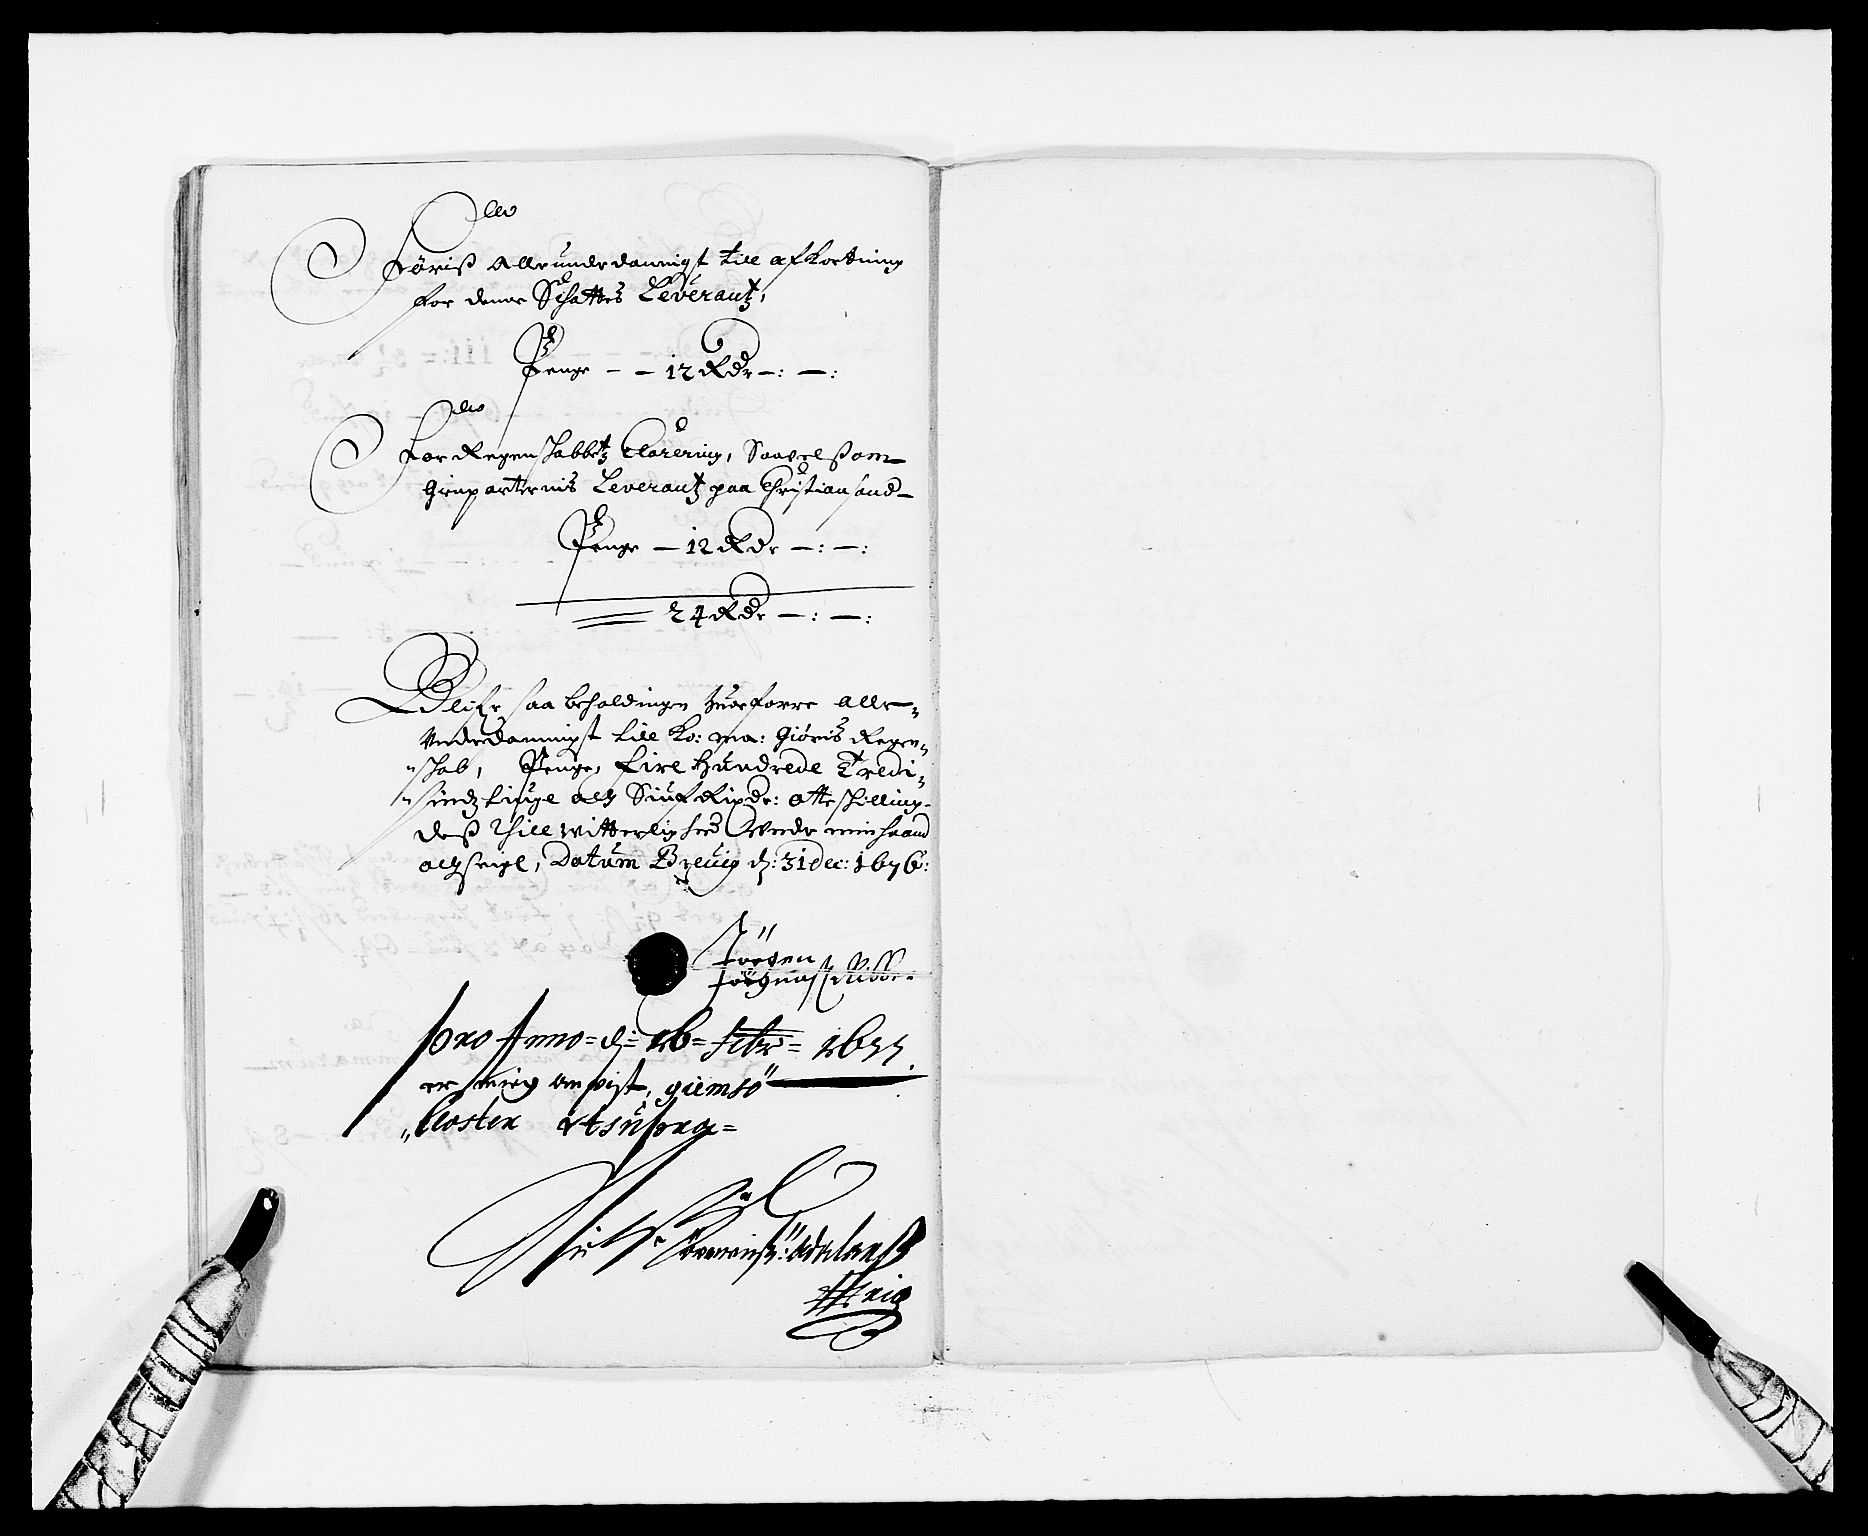 Føris Allerunderdannigst till afkortning
for denne Schattes Leverantz,
Penge - - 12 Rdr -: -:
For Regenskabbetz Clarering, Saavelsom
Gienparternis Leverantz paa Christiansand -
Penge - 12 Rdr -: -:
24 Rdr -: -:
Blifr saa beholdingen huorforre aller-
Underdannigst till Ko: ma: Giøris Regen-
skab, Penge, Fire Hundrede Tredi-
sindztiuge och Siuf Rixdr: otte skilling
Dess Till Witterlighed Under min haand
och seigl, Datum Brevig d: 31 Dec: 1676:
Jörgen
Anno d: 26 Febr 1677
er mig anvist, giemsö
Closter